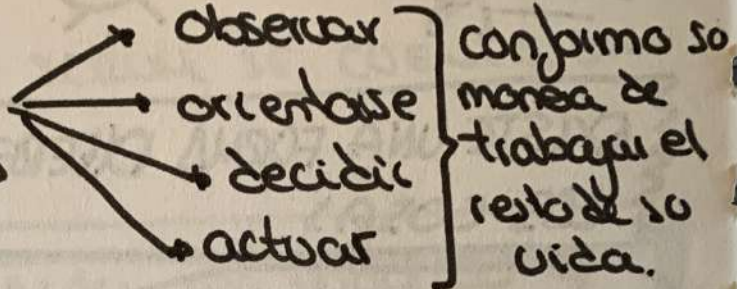 observar
orientarse
decidir
actuar
conformo so
manera de
trabajar el
resto de so
vida.